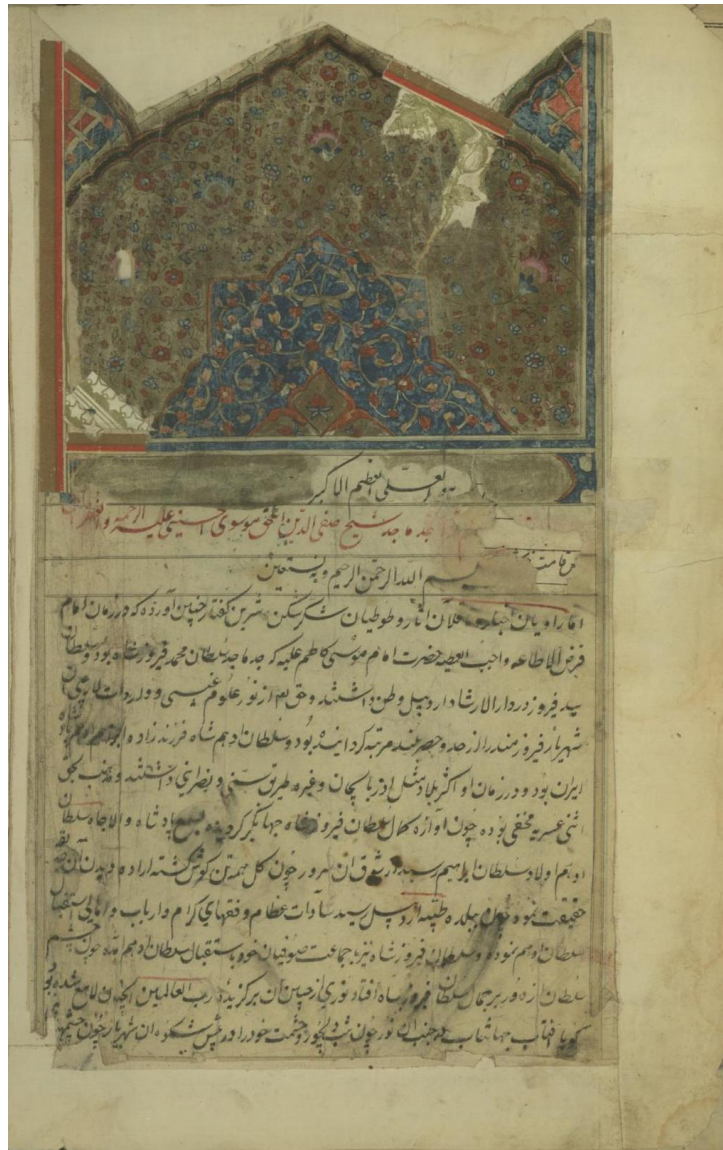 هو العلی العظیم الاکبر
جد ماجد شیخ صفی الدین اسحق موسوی الحسینی علیه الرحمة و
بسم الله الرحمن الرحیم و به نستعین
اما راویان اخبار و ناقلان آثار و طوطیان شکرشکن شیرین گفتار چنین آورده که در زمان امام
فرض الاطاعه واجب العصمه حضرت امام موسی کاظم علیه که جد ماجد سلطان محمد فیروز شاه بود و سلطان
سید فیروز در دار الارشاد اردبیل وطن داشتند و حق تعم از نور علوم غیبی و واردات لاریبی
شهریار فیروزمند را از حد و حصر بلند مرتبه گردانیده بود و سلطان ادهم شاه فرزند زاده
ایران بود و در زمان او اکثر بلاد مثل اذربایجان و غیره طریق سنی و نصرانی داشتند و مذهب بحق
اثنی عشریه مخفی بوده چون آوازه کمال سلطان فیروز شاه جهانگیر گردیده بسمع پادشاه والاجاه سلطان
ادهم اولاد سلطان ابراهیم رسید از شوق آن سرور چون گل همه تن گوش گشته اراده دیدن آن
حقیقت نموده چون ببلده طیبه اردبیل رسید سادات عظام و فقهای کرام و ارباب و اهالی استقبال
سلطان ادهم نموده و سلطان فیروز شاه نیز با جماعت صوفیان خود باستقبال سلطان ادهم آمده چون چشم
سلطان از دور بر جمال سلطان فیروز شاه افتاد نوری از جبین آن برگزیده رب العالمین
گویا آفتاب جهانتاب در جنب آن نور چون شب دیجور و حشمت خود را در پیش شکوه آن شهریار چون